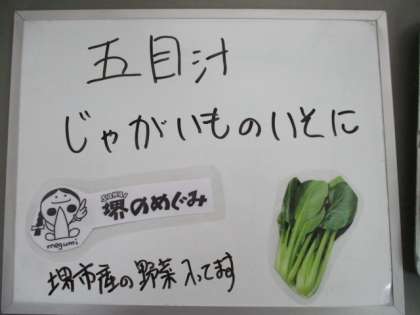 五目汁
じゃがいものいそに
堺のめぐみ
megumi
堺市産の野菜入ってます